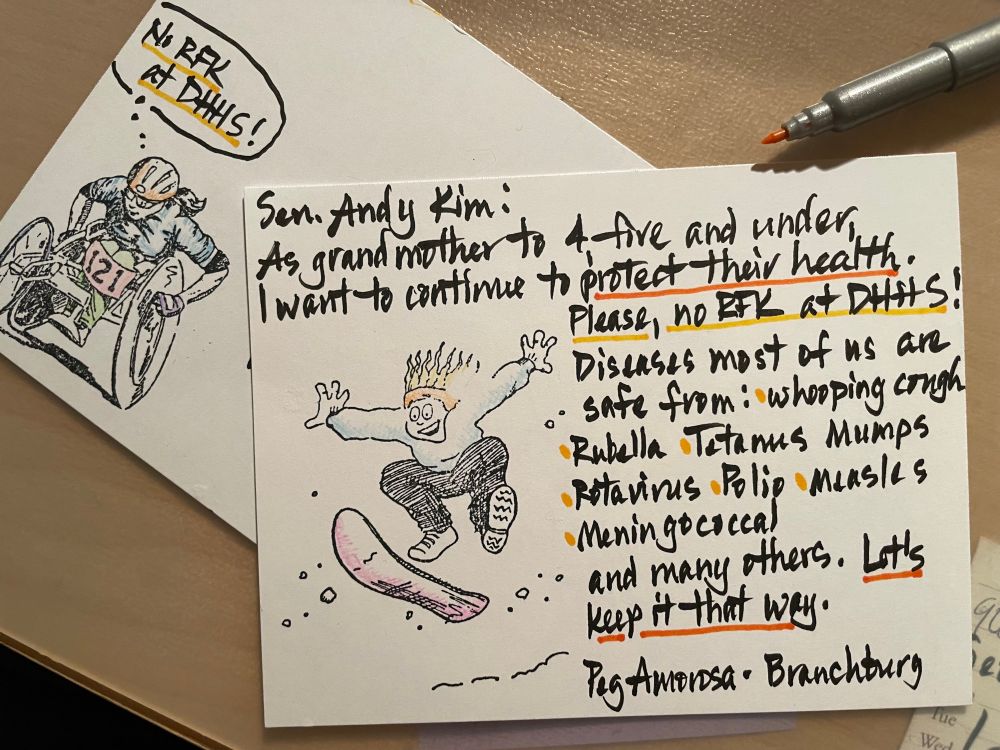 No RFK
at DHHS!
121
Sen. Andy Kim:
As grandmother to 4 five and under,
I want to continue to protect their health.
Please, no RFK at DHHS!
Diseases most of us are
safe from: • whooping cough
• Rubella • Tetanus Mumps
• Rotavirus • Polio • Measles
• Meningococcal
and many others. Let's
keep it that way.
Peg Amorosa • Branchburg
Tue
Wed